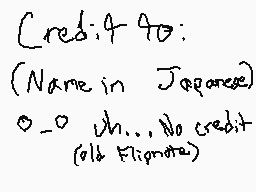 Credit to:
(Name in Japanese)
o_o uh... No credit
(old Flipnote)